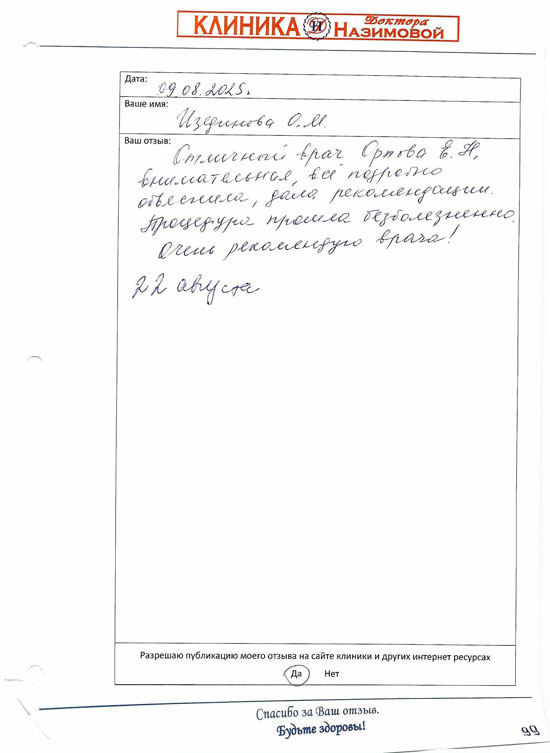 КЛИНИКА Доктора НАЗИМОВОЙ
Дата:
09.08.2025.
Ваше имя:
Изединова О.М.
Ваш отзыв:
Отличный врач Орлова Е.Н,
внимательная, всё подробно
объяснила, дала рекомендации.
Процедура прошла безболезненно.
Очень рекомендую врача!
22 августа
Разрешаю публикацию моего отзыва на сайте клиники и других интернет ресурсах
Да Нет
Спасибо за Ваш отзыв.
Будьте здоровы!
99